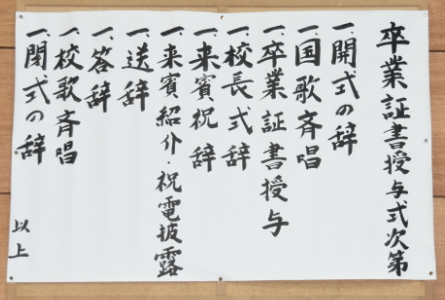 卒業証書授与式次第
一、開式の辞
一、国歌斉唱
一、卒業証書授与
一、校長式辞
一、来賓祝辞
一、来賓紹介・祝電披露
一、送辞
一、答辞
一、校歌斉唱
一、閉式の辞
以上